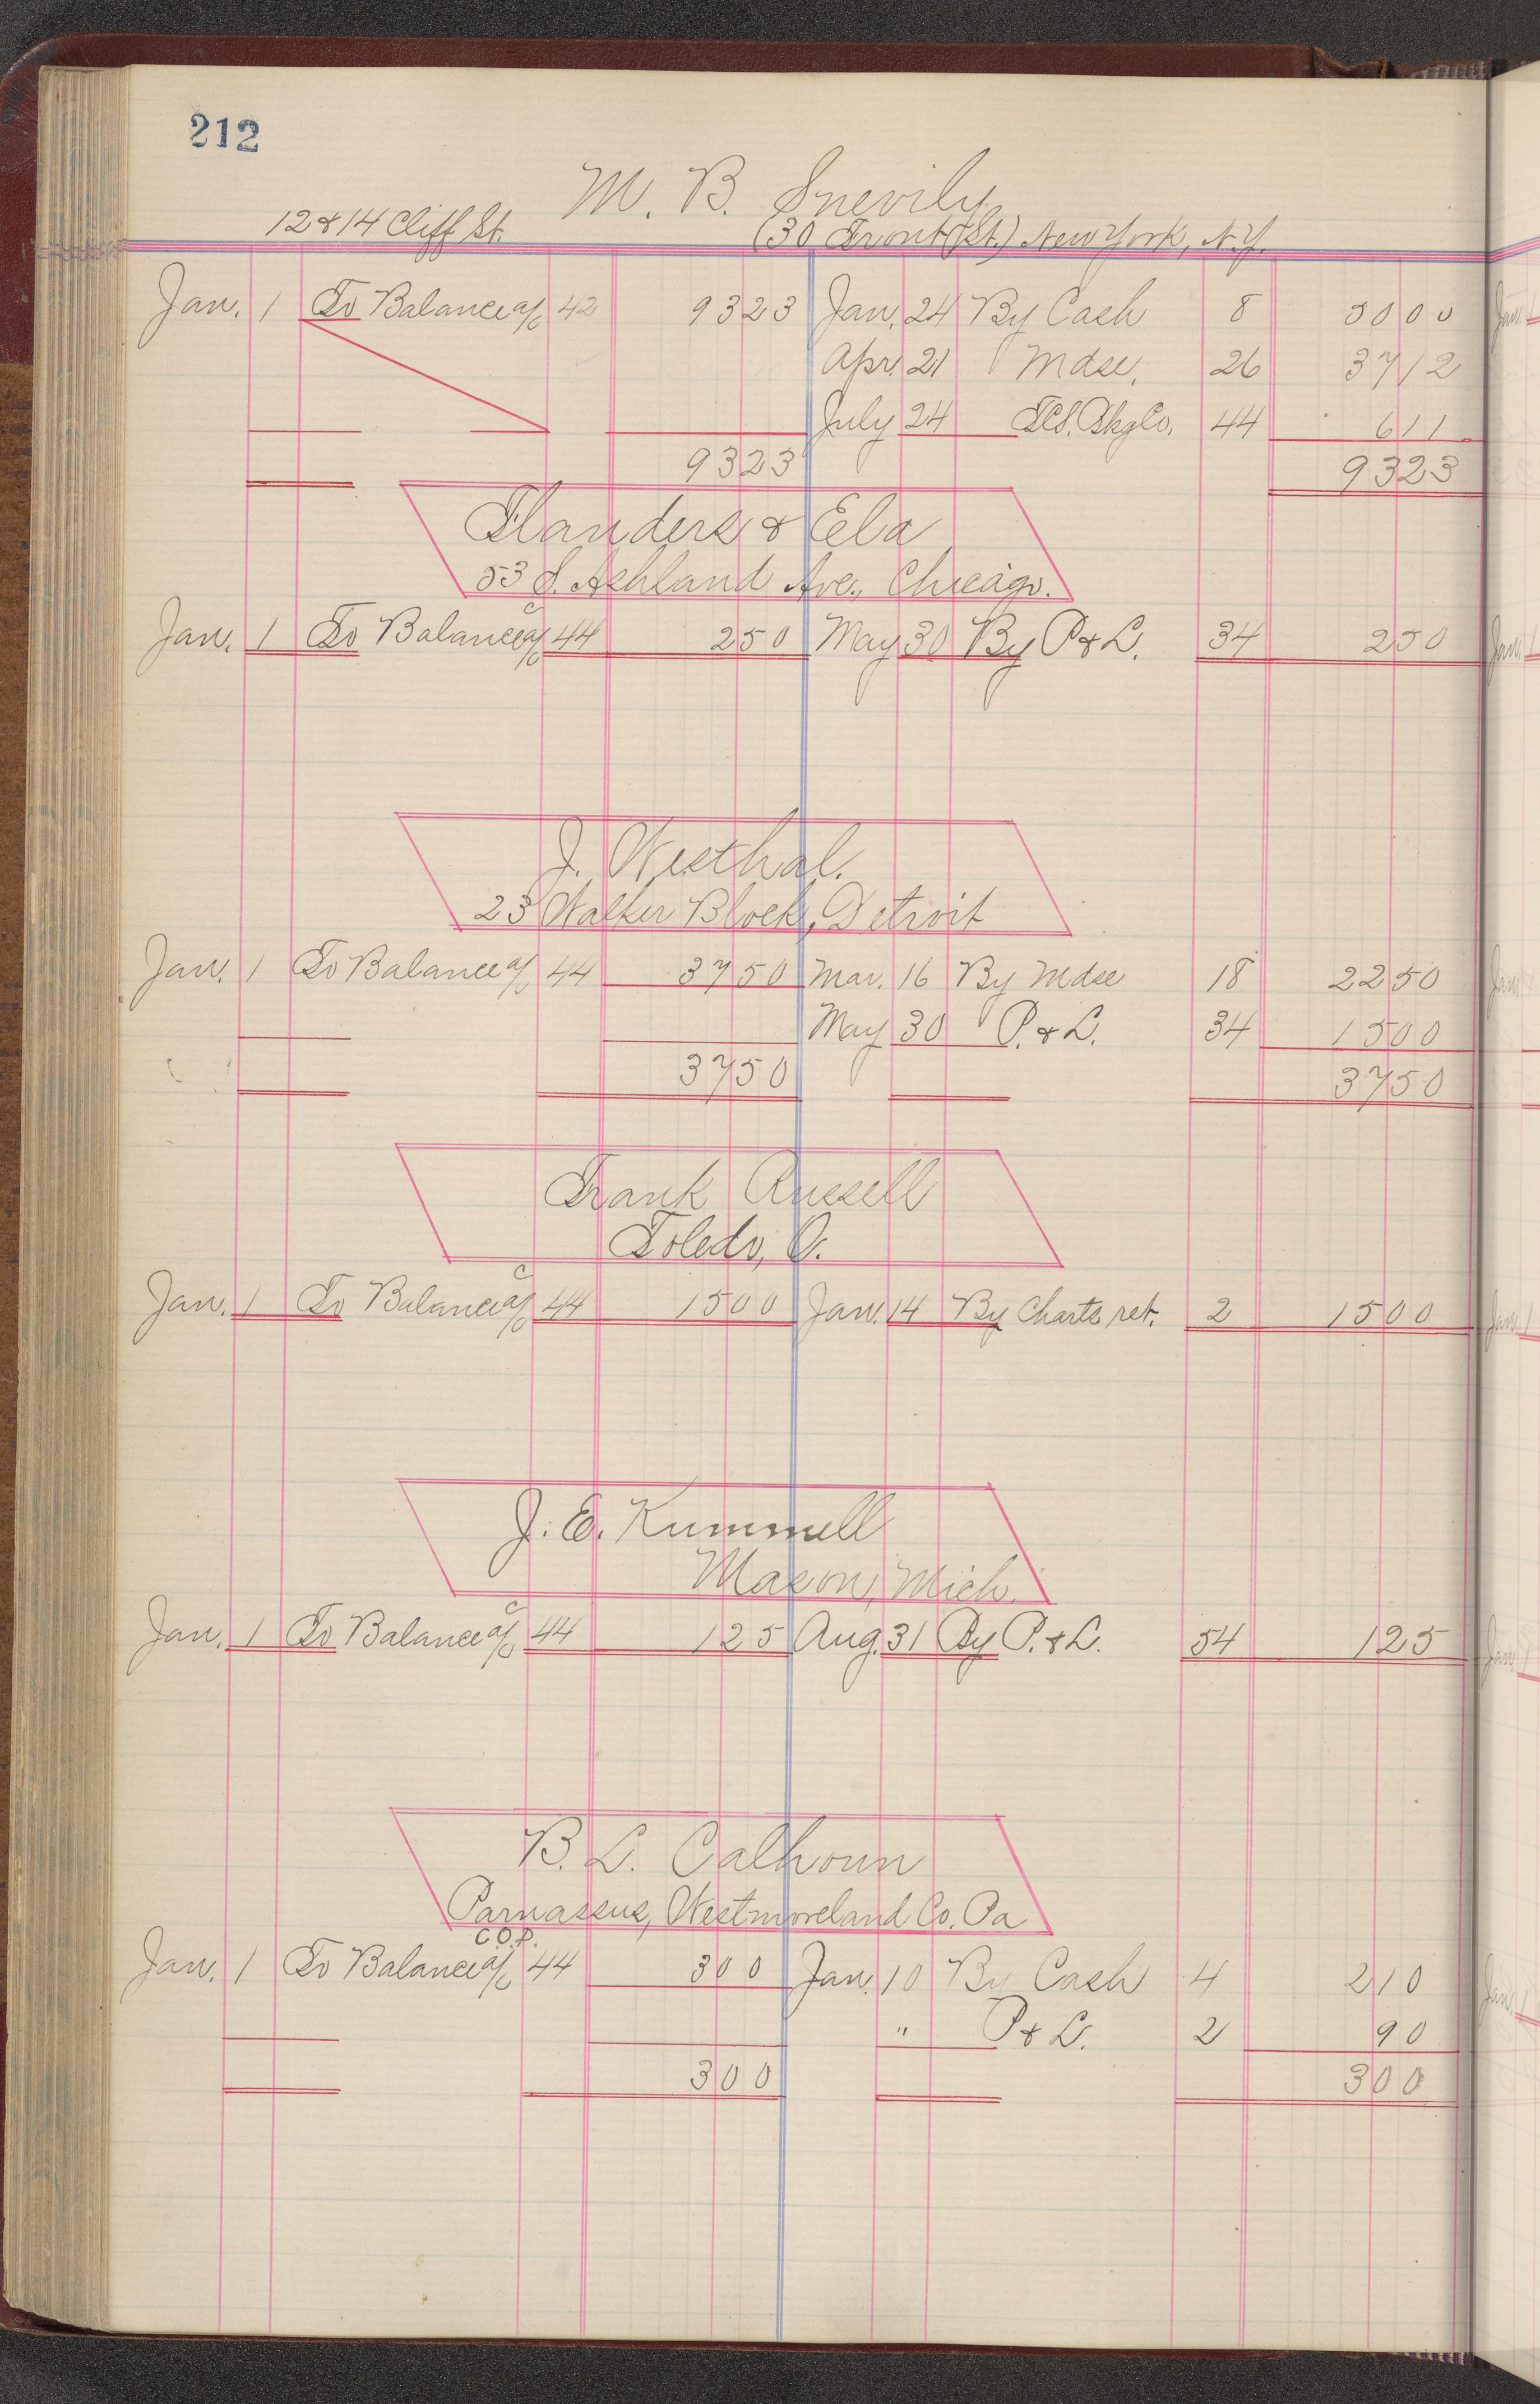 212
M. B. Snevily
12 & 14 Cliff St. (30 Front St.) New York, N.Y.
Jan. 1 To Balance a/c 42 9323 Jan. 24 By Cash 8 5000
Apr. 21 Mdse. 26 3712
July 24 Co. 44 611
9323 9323
Flanders & Ela
53 S. Ashland Ave., Chicago.
C
Jan. 1 To Balance a/c 44 250 May 30 By P & L. 34 250
J. Westhal.
23 Walker Block, Detroit
Jan. 1 To Balance a/c 44 3750 Mar. 16 By Mdse 18 2250
May 30 P. & L. 34 1500
3750 3750
Frank Russell
Toledo, O.
C
Jan. 1 To Balance a/c 44 1500 Jan. 14 By Charts ret. 2 1500
J. E. Kummell
Mason, Mich.
C
Jan. 1 To Balance a/c 44 125 Aug. 31 By P. & L. 54 125
B. L. Calhoun
Parnassus, Westmoreland Co. Pa
C.O.P.
Jan. 1 To Balance a/c 44 300 Jan. 10 By Cash 4 210
" P & L. 2 90
300 300